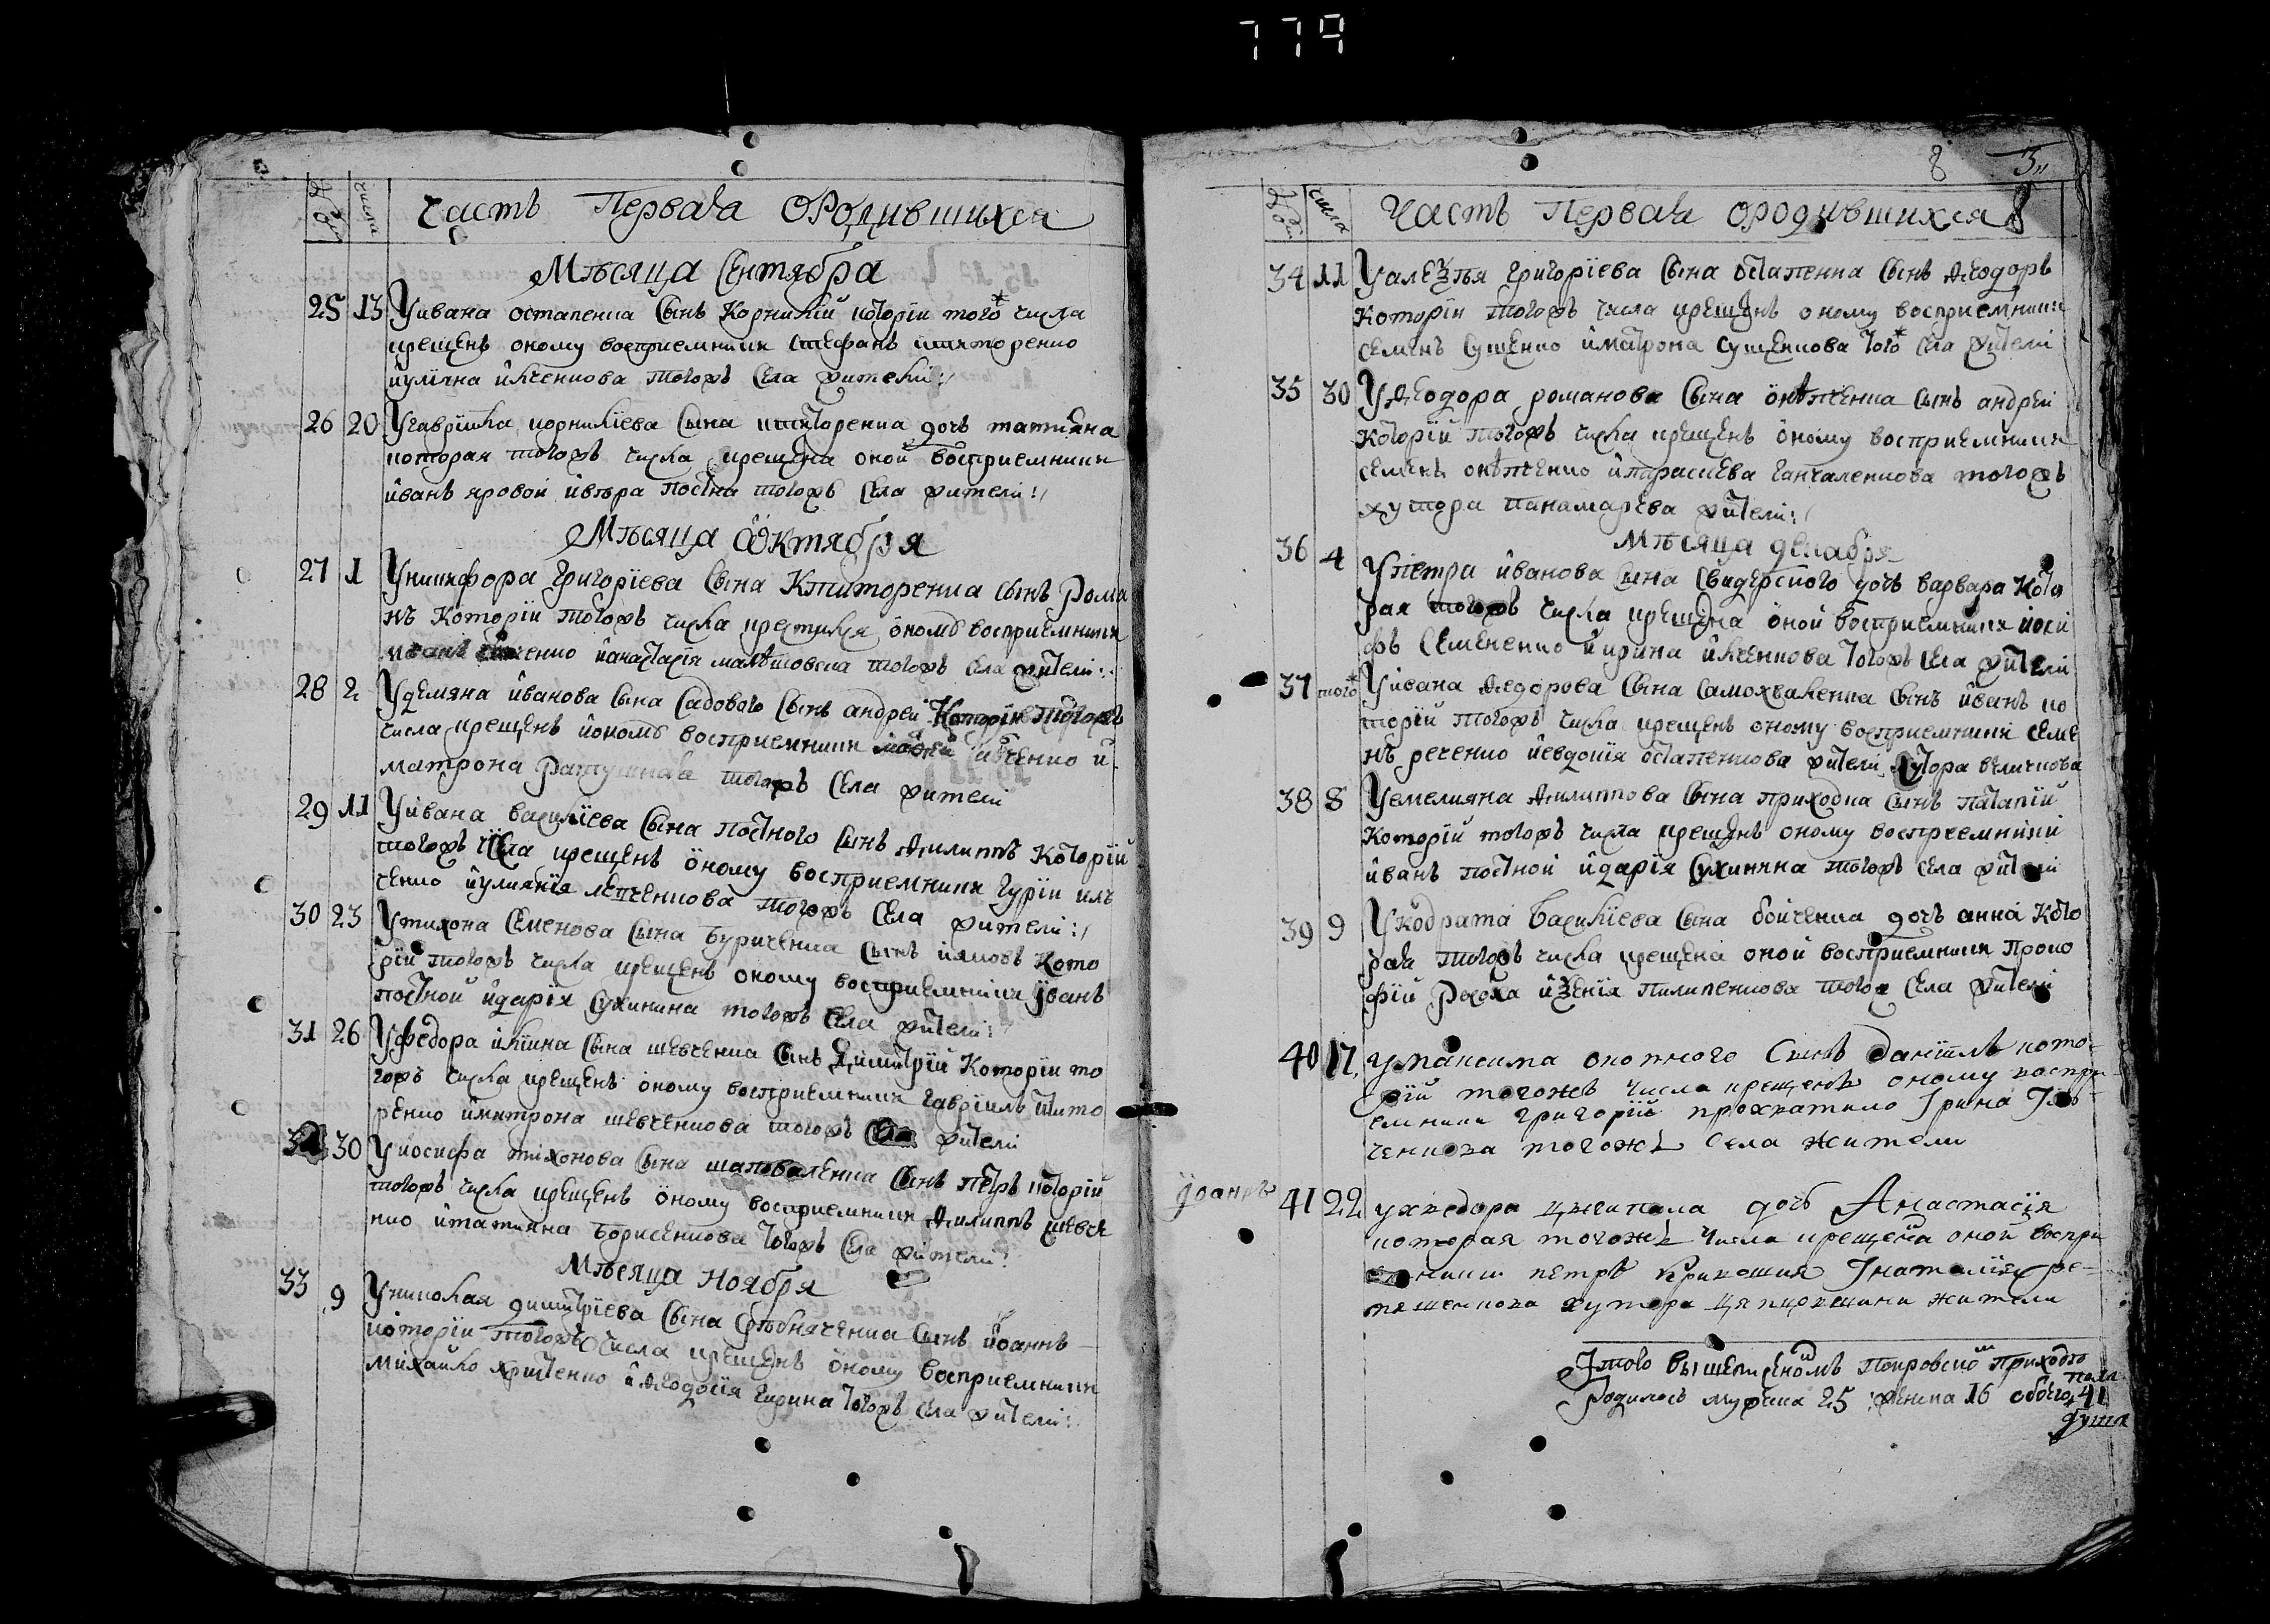 779
числа
Часть Первая О Родившихся
Мѣсяца Сентября
25 13 У ивана остапенка Сынъ Корнилій которіи того ж числа
крещенъ оному восприемники Стефанъ ктиторенко
и улияна илченкова тогожъ Села жители
26 20 У гаврійла корниліева Сына ктиторенка дочъ татияна
которая тогожъ числа крещена оной восприемники
иванъ яровой и вѣра постна тогожъ Села жители
Мѣсяца Октября
27 1 У никифора Григоріева Сына Ктиторенка Сынъ Рома
нъ Которіи тогожъ числа крестился ономъ восприемники
и анастасія тогожъ Села жители
28 2 У демяна иванова Сына Садового Сынъ андреи Которіи тогожъ
числа крещенъ и ономъ восприемники и
матрона тогожъ Села жители
29 11 У ивана василіева Сына постного Сынъ Филиппъ Которій
тогожъ числа крещенъ оному восприемники Гуріи илч
енко и улиянія лепченкова тогожъ Села жители
30 23 У тихона Семенова Сына Буриченка Сынъ іяковъ Кото
рій тогожъ числа крещенъ оному восприемники иванъ
постной и дарія Сухинина тогожъ Села жители
31 26 У федора иліина Сына шевченка Сынъ Димитрій Которіи то
гожъ числа крещенъ оному восприемники гавріилъ ктито
ренко и матрона шевченкова тогожъ Села жители
32 30 У иосифа тихонова Сына шаповаленка Сынъ петръ которій
тогожъ числа крещенъ оному восприемники Филиппъ шевче
нко и татияна Борисенкова тогожъ Села жители
Мѣсяца Ноября
33 9 У николая димитріева Сына Сынъ иоаннъ
которіи тогожъ числа крещенъ оному восприемники
михайло и Феодосія тогожъ Села жители
8 3
числа
Часть Первая о родившихся 8
34 11 У алеѯѣя григоріева Сына остапенка Сынъ Феодоръ
Которіи тогожъ числа крещенъ оному восприемники
семенъ Сущенко и матрона сущенкова того ж Села жители
35 30 У Феодора романова Сына Сынъ андрей
Которій тогожъ числа крещенъ оному восприемники
семенъ и параскева тогожъ
хутора жители
Мѣсяца декабря
36 4 У петра иванова Сына Свидерского дочъ варвара Кото
рая тогожъ числа крещена оной восприемники иоси
фъ Семененко и ирина илченкова тогожъ Села жители
37 того ж У ивана Федорова Сына Самохваленка Сынъ иванъ ко
торій тогожъ числа крещенъ оному восприемники семе
нъ реченко и евдокія остапенкова жители хутора величкова
38 8 У емелияна Филиппова Сына приходка Сынъ патапій
Которій тогожъ числа крещенъ оному восприемники
иванъ постной и дарія Сухинина тогожъ Села жители
39 9 У кодрата василіева Сына бойченка дочъ анна Кото
рая тогожъ числа крещена оной восприемники Проко
фій и ѯенія пилипенкова тогож Села жители
40 17 у максима охотного Сынъ даніилъ кото
рій тогожъ числа крещенъ оному воспри
емники григорій прохватило Ірина
ченкова тогожъ села жители
иоаннъ
41 22 у хведора дочъ Анастасія
которая тогожъ числа крещена оной воспри
емники петръ Інаталія
хутора жители
Итого вышеписаномъ покровском приходѣ
родилось мужеска 25 женска 16 обоего пола 41
душа